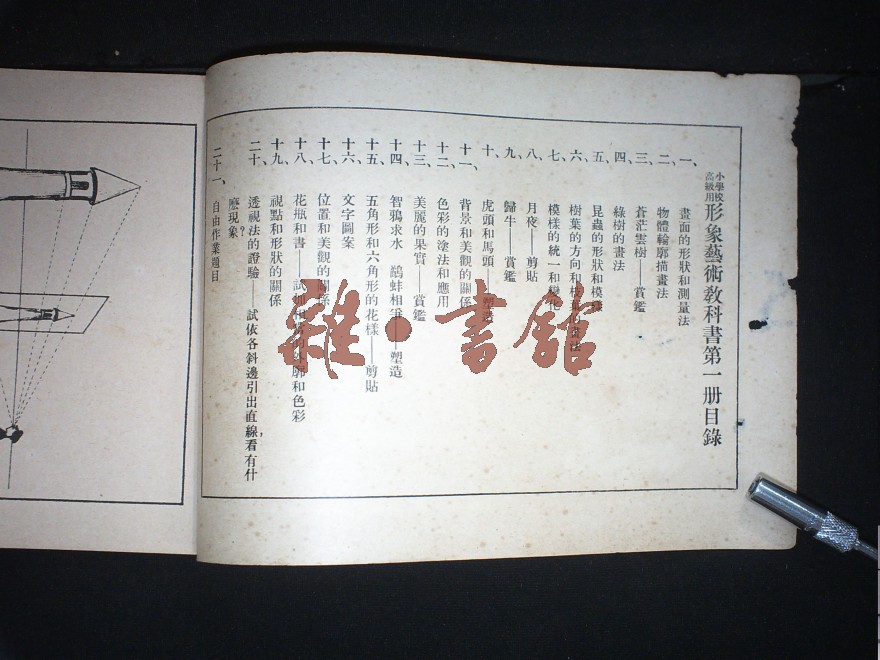 小學校
高級用
形象藝術教科書第一册目錄
一、畫面的形狀和測量法
二、物體輪廓描畫法
三、蒼茫雲樹——賞鑑
四、綠樹的畫法
五、昆蟲的形狀和模樣
六、樹葉的方向和
七、模樣的統一和變化
八、月夜——剪貼
九、歸牛——賞鑑
十、虎頭和馬頭——塑造
十一、背景和美觀的關係
十二、色彩的塗法和應用
十三、美麗的果實——賞鑑
十四、智鴉求水 鷸蚌相爭——塑造
十五、五角形和六角形的花樣——剪貼
十六、文字圖案
十七、位置和美觀的關係
十八、花瓶和書——試 和色彩
十九、視點和形狀的關係
二十、透視法的證驗——試依各斜邊引出直線,看有什
麼現象?
二十一、自由作業題目
雜·書館